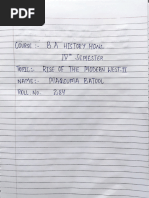 COURSE :- B.A HISTORY HONS.
IVth SEMESTER
TOPIC :- RISE OF THE MODERN WEST-II
NAME :- MASOOMA BATOOL
ROLL NO.